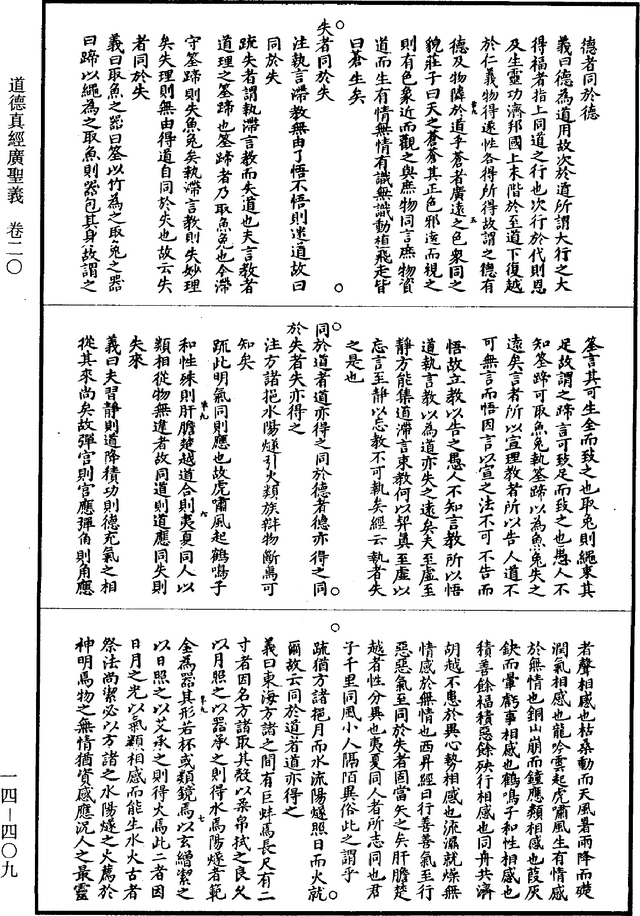 道德真經廣聖義　卷二〇
一四—四〇九
德者同於德
義曰德為道用故次於道所謂大行之大
得福者指上同道之行也次行於代則恩
及生靈功濟邦國上未階於至道下復越
於仁義物得遂性各得所得故謂之德有
德及物隣於道乎蒼者廣遠之色衆同之
貌莊子曰天之蒼蒼其正色邪遠而視之
則有色象近而觀之與庶物同言庶物資
道而生有情無情有識無識動植飛走皆
曰蒼生矣
失者同於失
注執言滯教無由了悟不悟則迷道故曰
同於失
疏失者謂執滯言教而失道也夫言教者
道理之筌蹄也筌蹄者乃取魚兔也令滯
守筌蹄則失魚兔矣執滯言教則失妙理
矣失理則無由得道自同於失也故云失
者同於失
義曰取魚之器曰筌以竹為之取兔之器
曰蹄以繩為之取魚則器包其身故謂之
筌言其可生全而致之也取兔則繩束其
足故謂之蹄言可致足而致之也愚人不
知筌蹄可取魚兔執筌蹄以為魚兔失之
遠矣言者所以宣理教者所以告人道不
可無言而悟因言以宣之法不可不告而
悟故立教以告之愚人不知言教所以悟
道執言教以為道亦失之遠矣夫至虛至
靜方能集道滯言束教何以契真至虛以
忘言至靜以忘教不可執矣經云執者失
之是也
同於道者道亦得之同於德者德亦得之同
於失者失亦得之
注方諸挹水陽燧引火類族辯物斷焉可
知矣
疏此明氣同則應也故虎嘯風起鶴鳴子
和性殊則肝膽楚越道合則夷夏同人以
類相從物無違者故同道則道應同失則
失來
義曰夫習靜則道降積功則德充氣之相
從其來尚矣故彈宮則宮應彈角則角應
者聲相感也枯桑動而天風暑雨降而礎
潤氣相感也龍吟雲起虎嘯風生有情感
於無情也銅山崩而鐘應類相感也葭灰
缺而暈虧事相感也鶴鳴子和性相感也
積善餘福積惡餘殃行相感也同舟共濟
胡越不患於異心勢相感也流濕就燥無
情感於無情也西昇經曰行善善氣至行
惡惡氣至同於失者固當矣之矣肝膽楚
越者性分異也夷夏同人者所志同也君
子千里同風小人隔陌異俗此之謂乎
疏猶方諸挹月而水流陽燧照日而火就
爾故云同於道者道亦得之
義曰東海方諸之間有巨蚌焉長尺有二
寸者因名方諸取其殼以柔帛拭之良久
以月照之以器承之則得水焉陽燧者範
金為器其形若杯或類鏡焉以玄繒潔之
以日照之以艾承之則得火焉此二者因
日月之光以氣類相感而能生水火古者
祭法尚潔必以方諸之水陽燧之火薦於
神明焉物之無情猶資感應況人之最靈